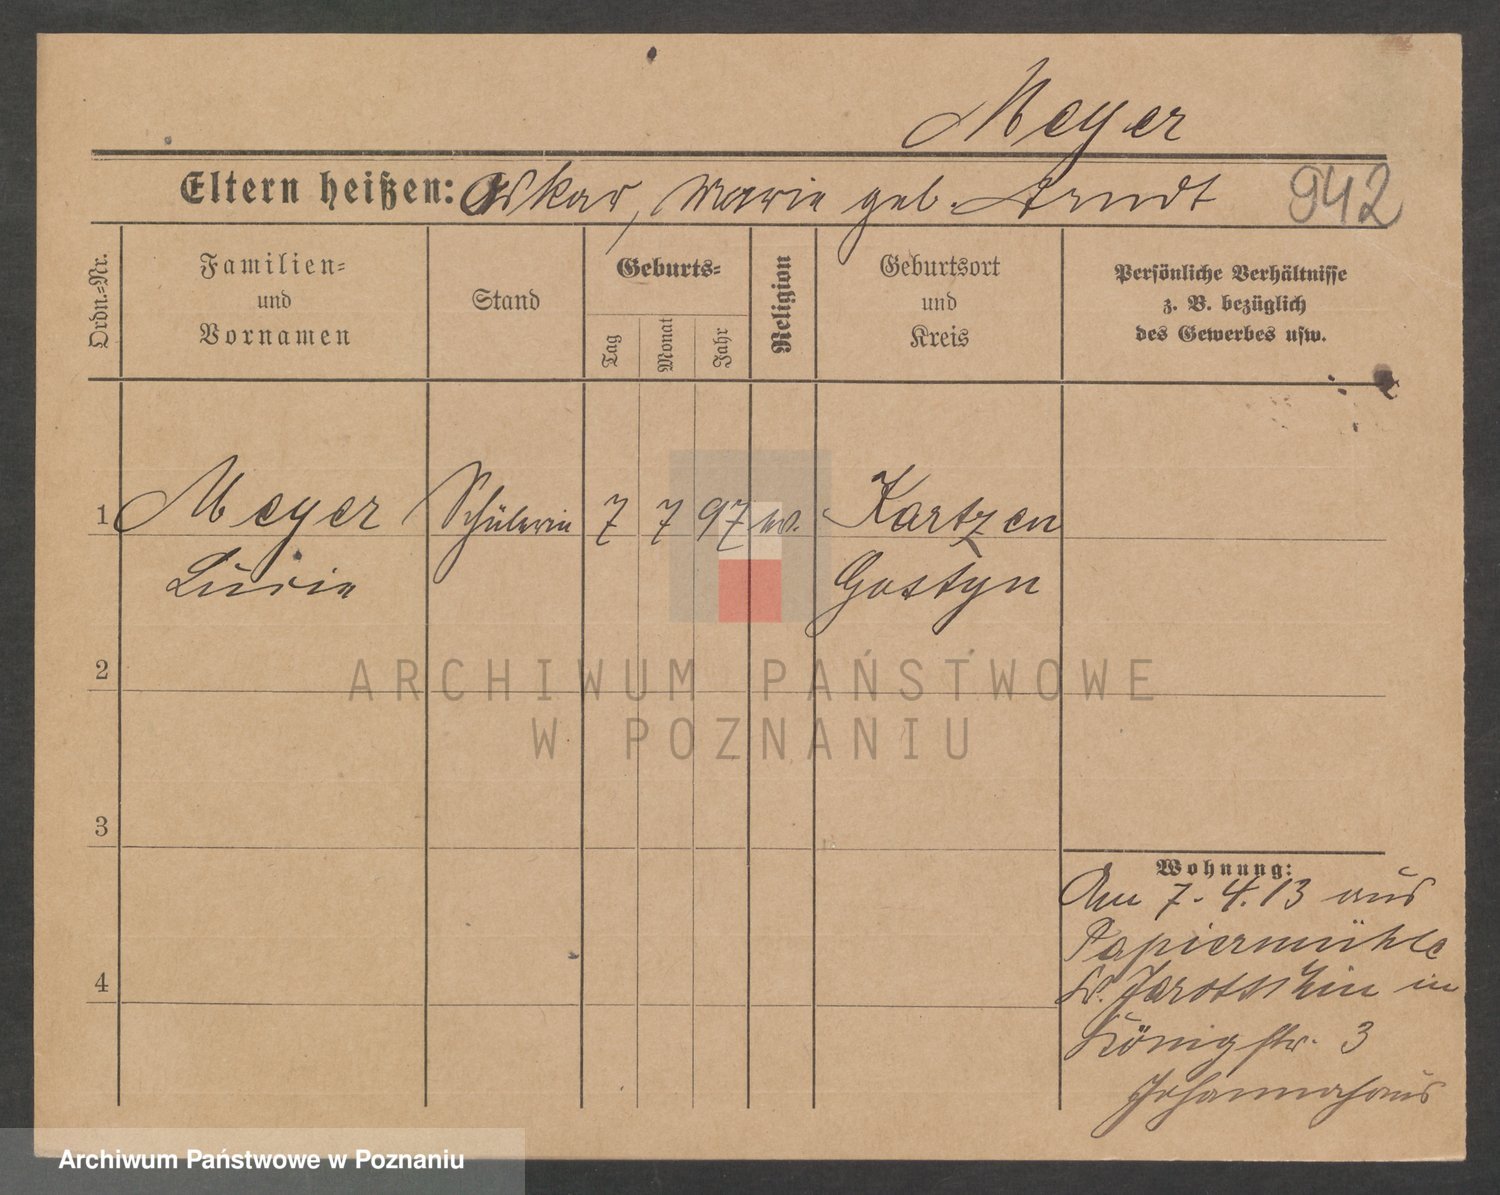 Meyer
Eltern heißen: Oskar, Marie geb. Arndt
942
Ordn.-Nr.
Familien-
und
Vornamen
Stand
Geburts-
Tag
Monat
Jahr
Religion
Geburtsort
und
Kreis
Persönliche Verhältnisse
z. B. bezüglich
des Gewerbes usw.
1 Meyer Schülerin 7 7 97 ev. Kartzen
Lucie Gostyn
2
3
4
Wohnung:
Am 7.4.13 aus
Papiermühle
Kr. Jarotschin in
Königstr. 3
Johannahaus
ARCHIWUM PAŃSTWOWE
W POZNANIU
Archiwum Państwowe w Poznaniu